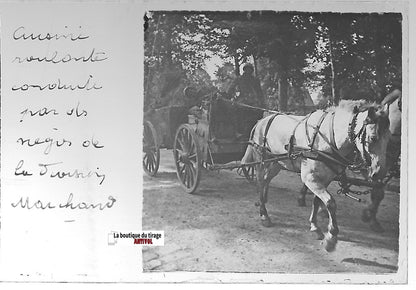 Cuisine
roulante
conduite
par ds
nègres de
la Division
Marchand
La boutique du tirage
ANTIVOL